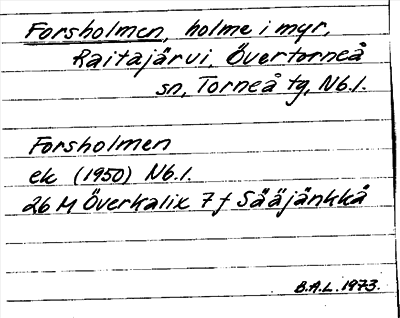 Forsholmen, holme i myr,
Raitajärvi, Övertorneå
sn, Torneå tg, Nb.l.
Forsholmen
ek (1950) Nb.l.
26 M Överkalix 7 f Sääjänkkä
B.A.L. 1973.